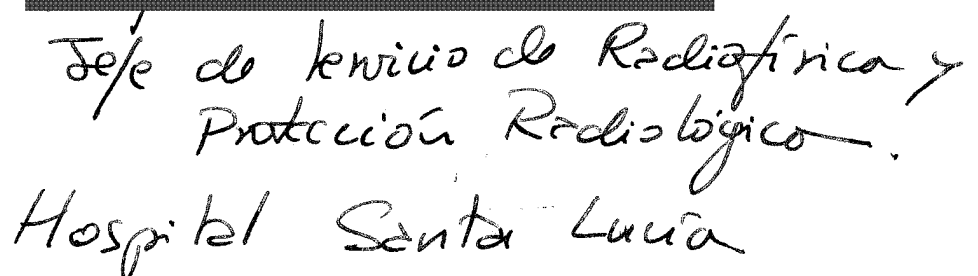 Jefe de servicio de Radiofísica y
Protección Radiológica.
Hospital Santa Lucía